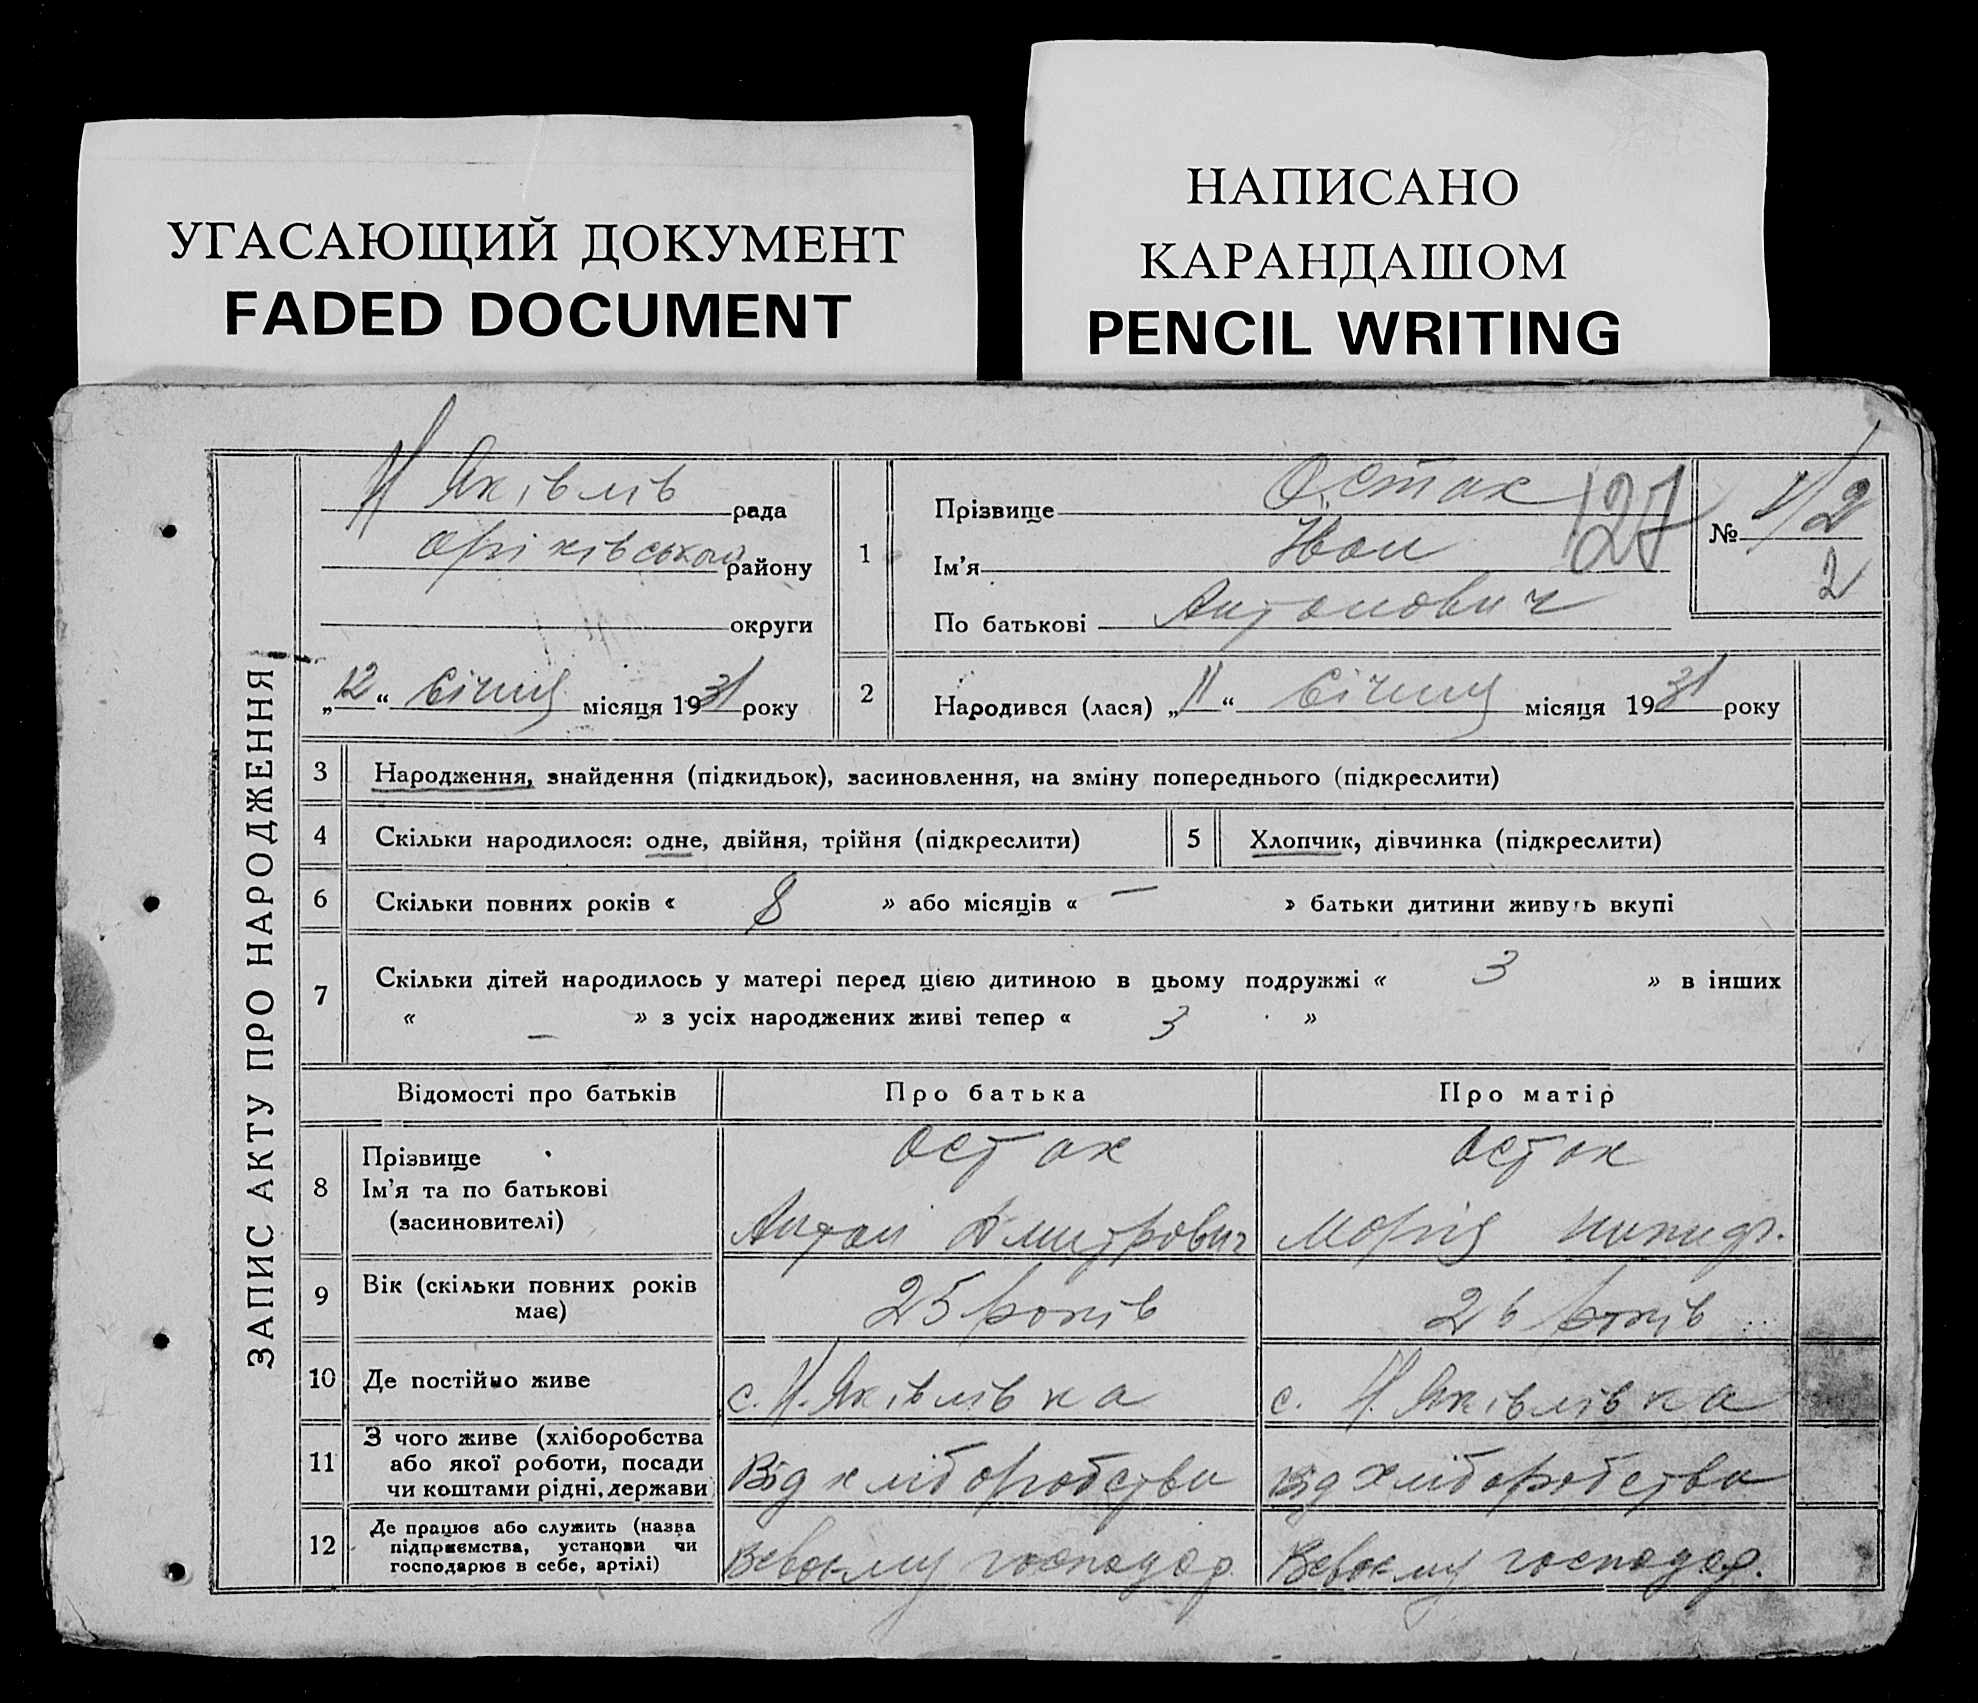 УГАСАЮЩИЙ ДОКУМЕНТ
FADED DOCUMENT
НАПИСАНО
КАРАНДАШОМ
PENCIL WRITING
ЗАПИС АКТУ ПРО НАРОДЖЕННЯ
Н Яківлів рада
Оріхівського району
округи
„12“ Січня місяця 1931 року
1 Прізвище Остах
Ім'я Іван
По батькові Антонович
127
№ 1/2
2
2 Народився (лася) „11“ Січня місяця 1931 року
3 Народження, знайдення (підкидьок), засиновлення, на зміну попереднього (підкреслити)
4 Скільки народилося: одне, двійня, трійня (підкреслити) 5 Хлопчик, дівчинка (підкреслити)
6 Скільки повних років « 8 » або місяців « — » батьки дитини живуть вкупі
7 Скільки дітей народилось у матері перед цією дитиною в цьому подружжі « 3 » в інших
« — » з усіх народжених живі тепер « 3 »
Відомості про батьків Про батька Про матір
8 Прізвище
Ім'я та по батькові
(засиновителі)
Остах
Антон Дмитрович
Остах
Марія
9 Вік (скільки повних років
має)
25 років
26 років
10 Де постійно живе с. Н. Яківлівка с. Н. Яківлівка
11 З чого живе (хліборобства
або якої роботи, посади
чи коштами рідні, держави
Від хліборобства
Від хліборобства
12 Де працює або служить (назва
підприємства, установи чи
господарює в себе, артілі)
Всвоєму господар.
Всвоєму господар.